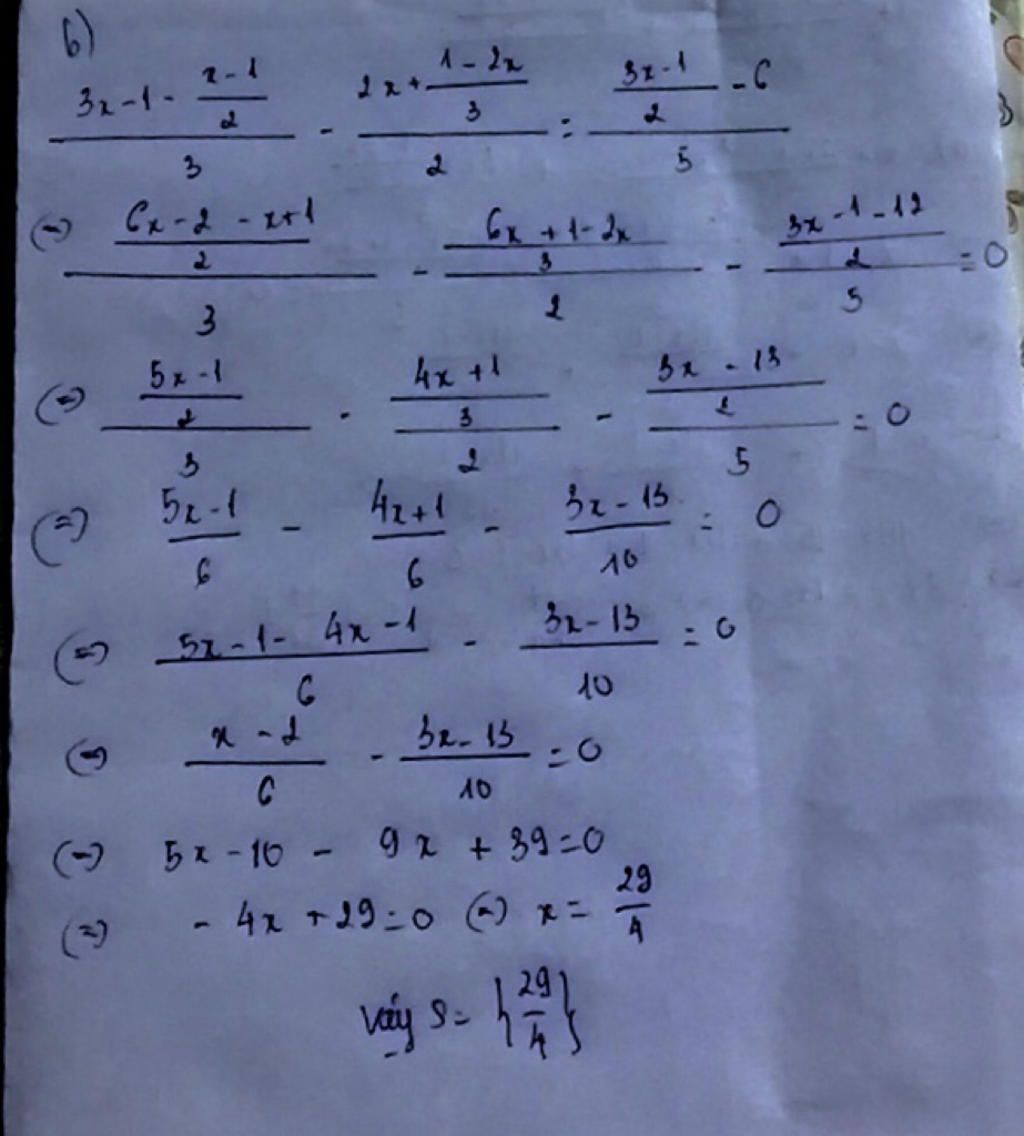 b)
\frac{3x-1-\frac{x-1}{2}}{3} - \frac{2x+\frac{1-2x}{3}}{2} = \frac{\frac{3x-1}{2}-6}{5}
(=) \frac{\frac{6x-2-x+1}{2}}{3} - \frac{\frac{6x+1-2x}{3}}{2} - \frac{\frac{3x-1-12}{2}}{5} = 0
(=) \frac{\frac{5x-1}{2}}{3} - \frac{\frac{4x+1}{3}}{2} - \frac{\frac{3x-13}{2}}{5} = 0
(=) \frac{5x-1}{6} - \frac{4x+1}{6} - \frac{3x-13}{10} = 0
(=) \frac{5x-1-4x-1}{6} - \frac{3x-13}{10} = 0
(=) \frac{x-2}{6} - \frac{3x-13}{10} = 0
(=) 5x-10 - 9x + 39 = 0
(=) - 4x + 29 = 0 (=) x = \frac{29}{4}
vậy S = \{\frac{29}{4}\}